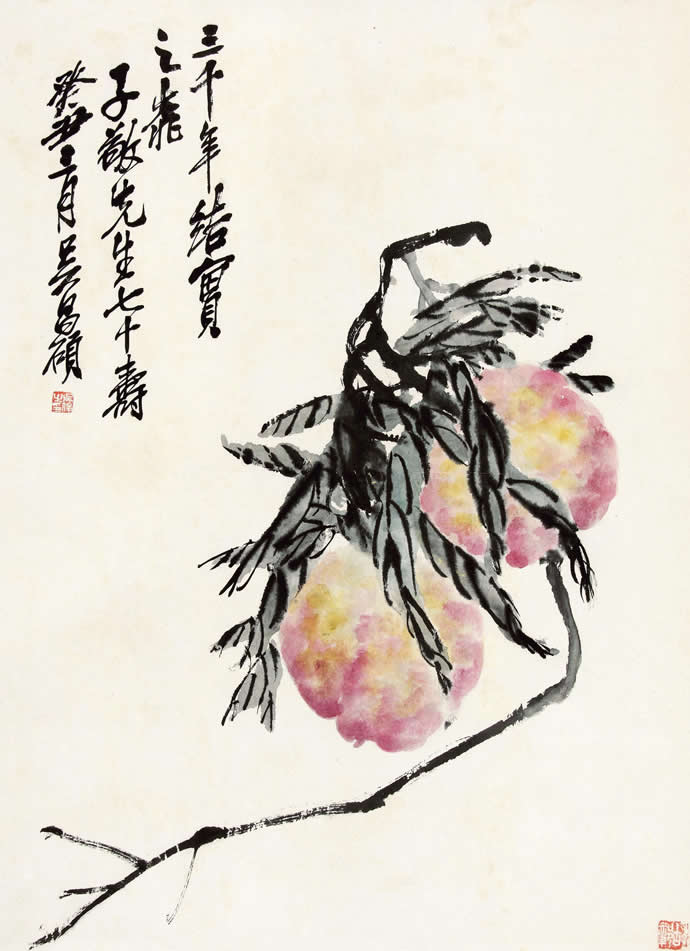 三千年結實
之桃
子敬先生七十壽
癸丑二月吳昌碩